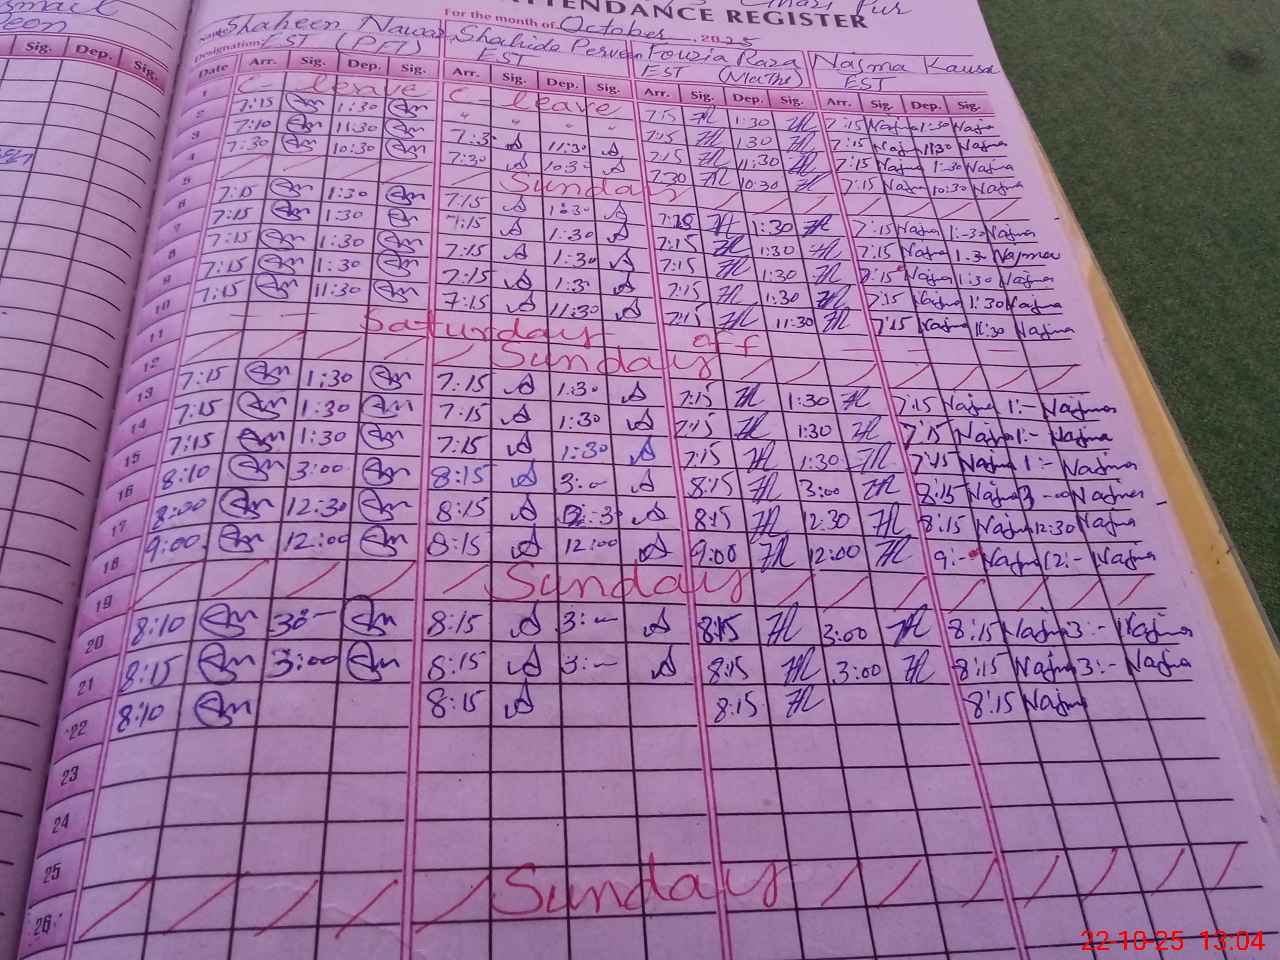 ATTENDANCE REGISTER
For the month of October 2025
Name Shaheen Nawaz Shahida Perveen Fouzia Raza Najma Kausar
Designation EST (PET) EST EST (Maths) EST
Sig. Dep. Sig.
Date Arr. Sig. Dep. Sig. Arr. Sig. Dep. Sig. Arr. Sig. Dep. Sig. Arr. Sig. Dep. Sig.
1 C- leave C- leave 7:15 1:30 7:15 Najma 1:30 Najma
2 7:15 1:30 " " " " 7:15 1:30 7:15 Najma 11:30 Najma
3 7:10 11:30 7:30 11:30 7:15 11:30 7:15 Najma 1:30 Najma
4 7:30 10:30 7:30 10:30 7:30 10:30 7:15 Najma 10:30 Najma
5 Sunday
6 7:15 1:30 7:15 1:30 7:15 1:30 7:15 Najma 1:30 Najma
7 7:15 1:30 7:15 1:30 7:15 1:30 7:15 Najma 1:30 Najma
8 7:15 1:30 7:15 1:30 7:15 1:30 7:15 Najma 1:30 Najma
9 7:15 1:30 7:15 1:30 7:15 1:30 7:15 Najma 1:30 Najma
10 7:15 11:30 7:15 11:30 7:15 11:30 7:15 Najma 11:30 Najma
11 Saturday off
12 Sunday
13 7:15 1:30 7:15 1:30 7:15 1:30 7:15 Najma 1:- Najma
14 7:15 1:30 7:15 1:30 7:15 1:30 7:15 Najma 1:- Najma
15 7:15 1:30 7:15 1:30 7:15 1:30 7:15 Najma 1:- Najma
16 8:10 3:00 8:15 3:- 8:15 3:00 8:15 Najma 3-00 Najma
17 8:00 12:30 8:15 8:15 12:30 8:15 Najma 12:30 Najma
18 9:00 12:00 8:15 12:00 9:00 12:00 9:- Najma 12:- Najma
19 Sunday
20 8:10 8:15 3:- 8:15 3:00 8:15 Najma 3:- Najma
21 8:15 3:00 8:15 3:- 8:15 3:00 8:15 Najma 3:- Najma
22 8:10 8:15 8:15 8:15 Najma
23
24
25
26 Sunday
22-10-25 13:04